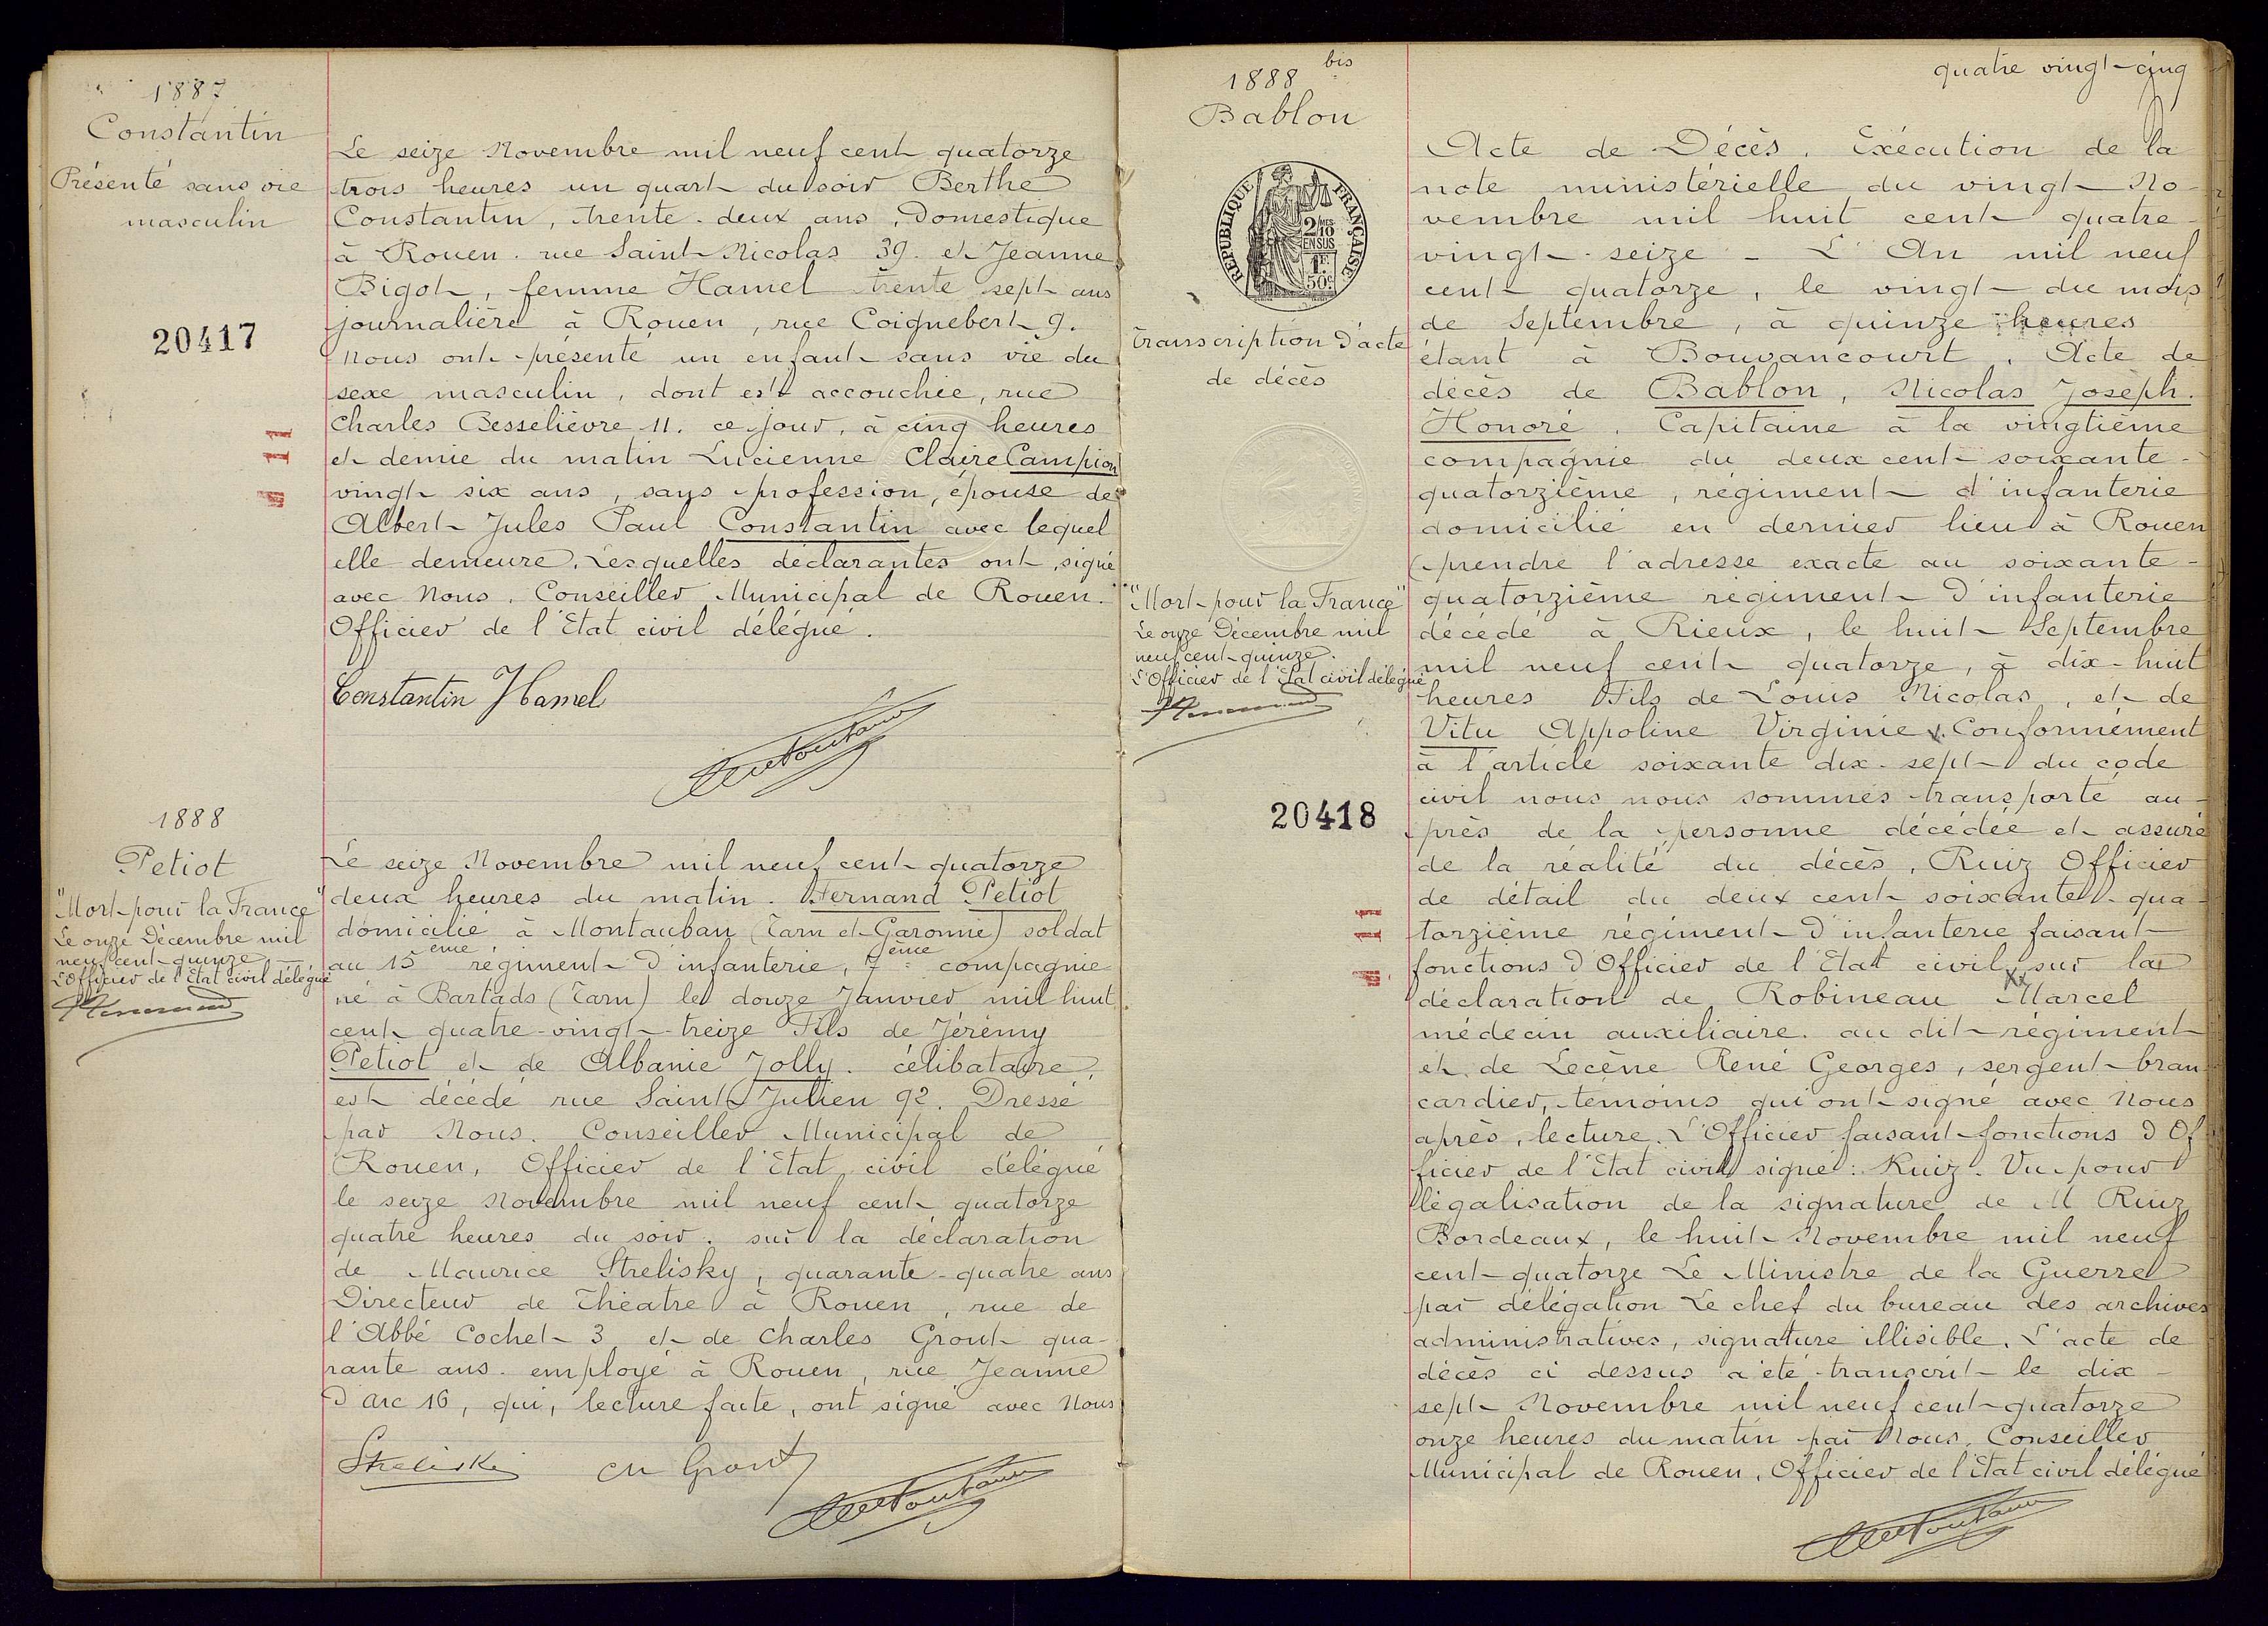 1887
Constantin
Présenté sans vie
masculin
20417
11
Le seize Novembre mil neuf cent quatorze
trois heures un quart du soir Berthe
Constantin, trente-deux ans, Domestique
à Rouen. rue Saint-Nicolas 39. et Jeanne
Bigot, femme Hamel trente sept ans
journalière à Rouen, rue Coignebert 9.
nous ont présenté un enfant sans vie du
sexe masculin, dont est accouchée, rue
Charles Besselièvre 11. ce jour, à cinq heures
et demie du matin Lucienne Claire Campion
vingt six ans, sans profession, épouse de
Albert Jules Paul Constantin avec lequel
elle demeure. Lesquelles déclarantes ont signé
avec Nous. Conseiller Municipal de Rouen.
Officier de l'Etat civil délégué.
Constantin Hamel
1888
Petiot
"Mort pour la France"
Le onze Décembre mil
neuf cent quinze
L'Officier de l'Etat civil délégué
Le seize Novembre mil neuf cent quatorze
deux heures du matin. Fernand Petiot
domicilié à Montauban (Tarn et Garonne) soldat
au 15ème régiment d'infanterie, 7ème compagnie
né à Bartads (Tarn) le douze Janvier mil huit
cent quatre-vingt-treize Fils de Jérémy
Petiot et de Albanie Jolly. célibataire,
est décédé rue Saint Julien 92. Dressé
par Nous. Conseiller Municipal de
Rouen, Officier de l'Etat civil délégué
le seize Novembre mil neuf cent quatorze
quatre heures du soir. sur la déclaration
de Maurice Strelisky, quarante-quatre ans
Directeur de Théatre à Rouen, rue de
l'Abbé Cochet 3 et de Charles Grout qua-
rante ans. employé à Rouen, rue Jeanne
d'Arc 16, qui, lecture faite, ont signé avec Nous
Streliski Ch Grout
1888 bis
Bablon
REPUBLIQUE FRANÇAISE
2/10
EN SUS
1F
50c
Transcription d'acte
de décès
"Mort pour la France"
Le onze Décembre mil
neuf cent quinze.
L'Officier de l'Etat civil délégué
20418
11
quatre vingt-cinq
Acte de Décès. Exécution de la
note ministérielle du vingt No-
vembre mil huit cent quatre-
vingt-seize - L'An mil neuf
cent quatorze, le vingt du mois
de Septembre, à quinze heures
étant à Bouvancourt. Acte de
décès de Bablon, Nicolas Joseph.
Honoré. Capitaine à la vingtième
compagnie du deux cent soixante-
quatorzième, régiment d'infanterie
domicilié en dernier lieu à Rouen
(prendre l'adresse exacte au soixante-
quatorzième régiment d'infanterie
décédé à Rieux, le huit Septembre
mil neuf cent quatorze, à dix-huit
heures Fils de Louis Nicolas, et de
Vitu Appoline Virginie. Conformément
à l'article soixante dix-sept du code
civil nous nous sommes transporté au-
près de la personne décédée et assuré
de la réalité du décès. Ruiz Officier
de détail du deux cent soixante-qua-
torzième régiment d'infanterie faisant
fonctions d'Officier de l'Etat civil, sur la
déclaration de Robineau Marcel
médecin auxiliaire au dit régiment
et de Lecène René Georges, sergent-bran-
cardier, témoins qui ont signé avec Nous
après lecture. L'Officier faisant fonctions d'Of-
ficier de l'Etat civil signé: Ruiz. Vu pour
légalisation de la signature de M Ruiz
Bordeaux, le huit Novembre mil neuf
cent quatorze Le Ministre de la Guerre
par délégation Le chef du bureau des archives
administratives, signature illisible. L'acte de
décès ci dessus a été transcrit le dix-
sept Novembre mil neuf cent quatorze
onze heures du matin par Nous, Conseiller
Municipal de Rouen, Officier de l'Etat civil délégué